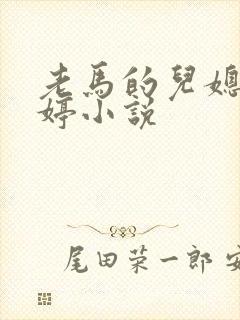 老馬的兒媳
婷小說
尾田荣一郎 安